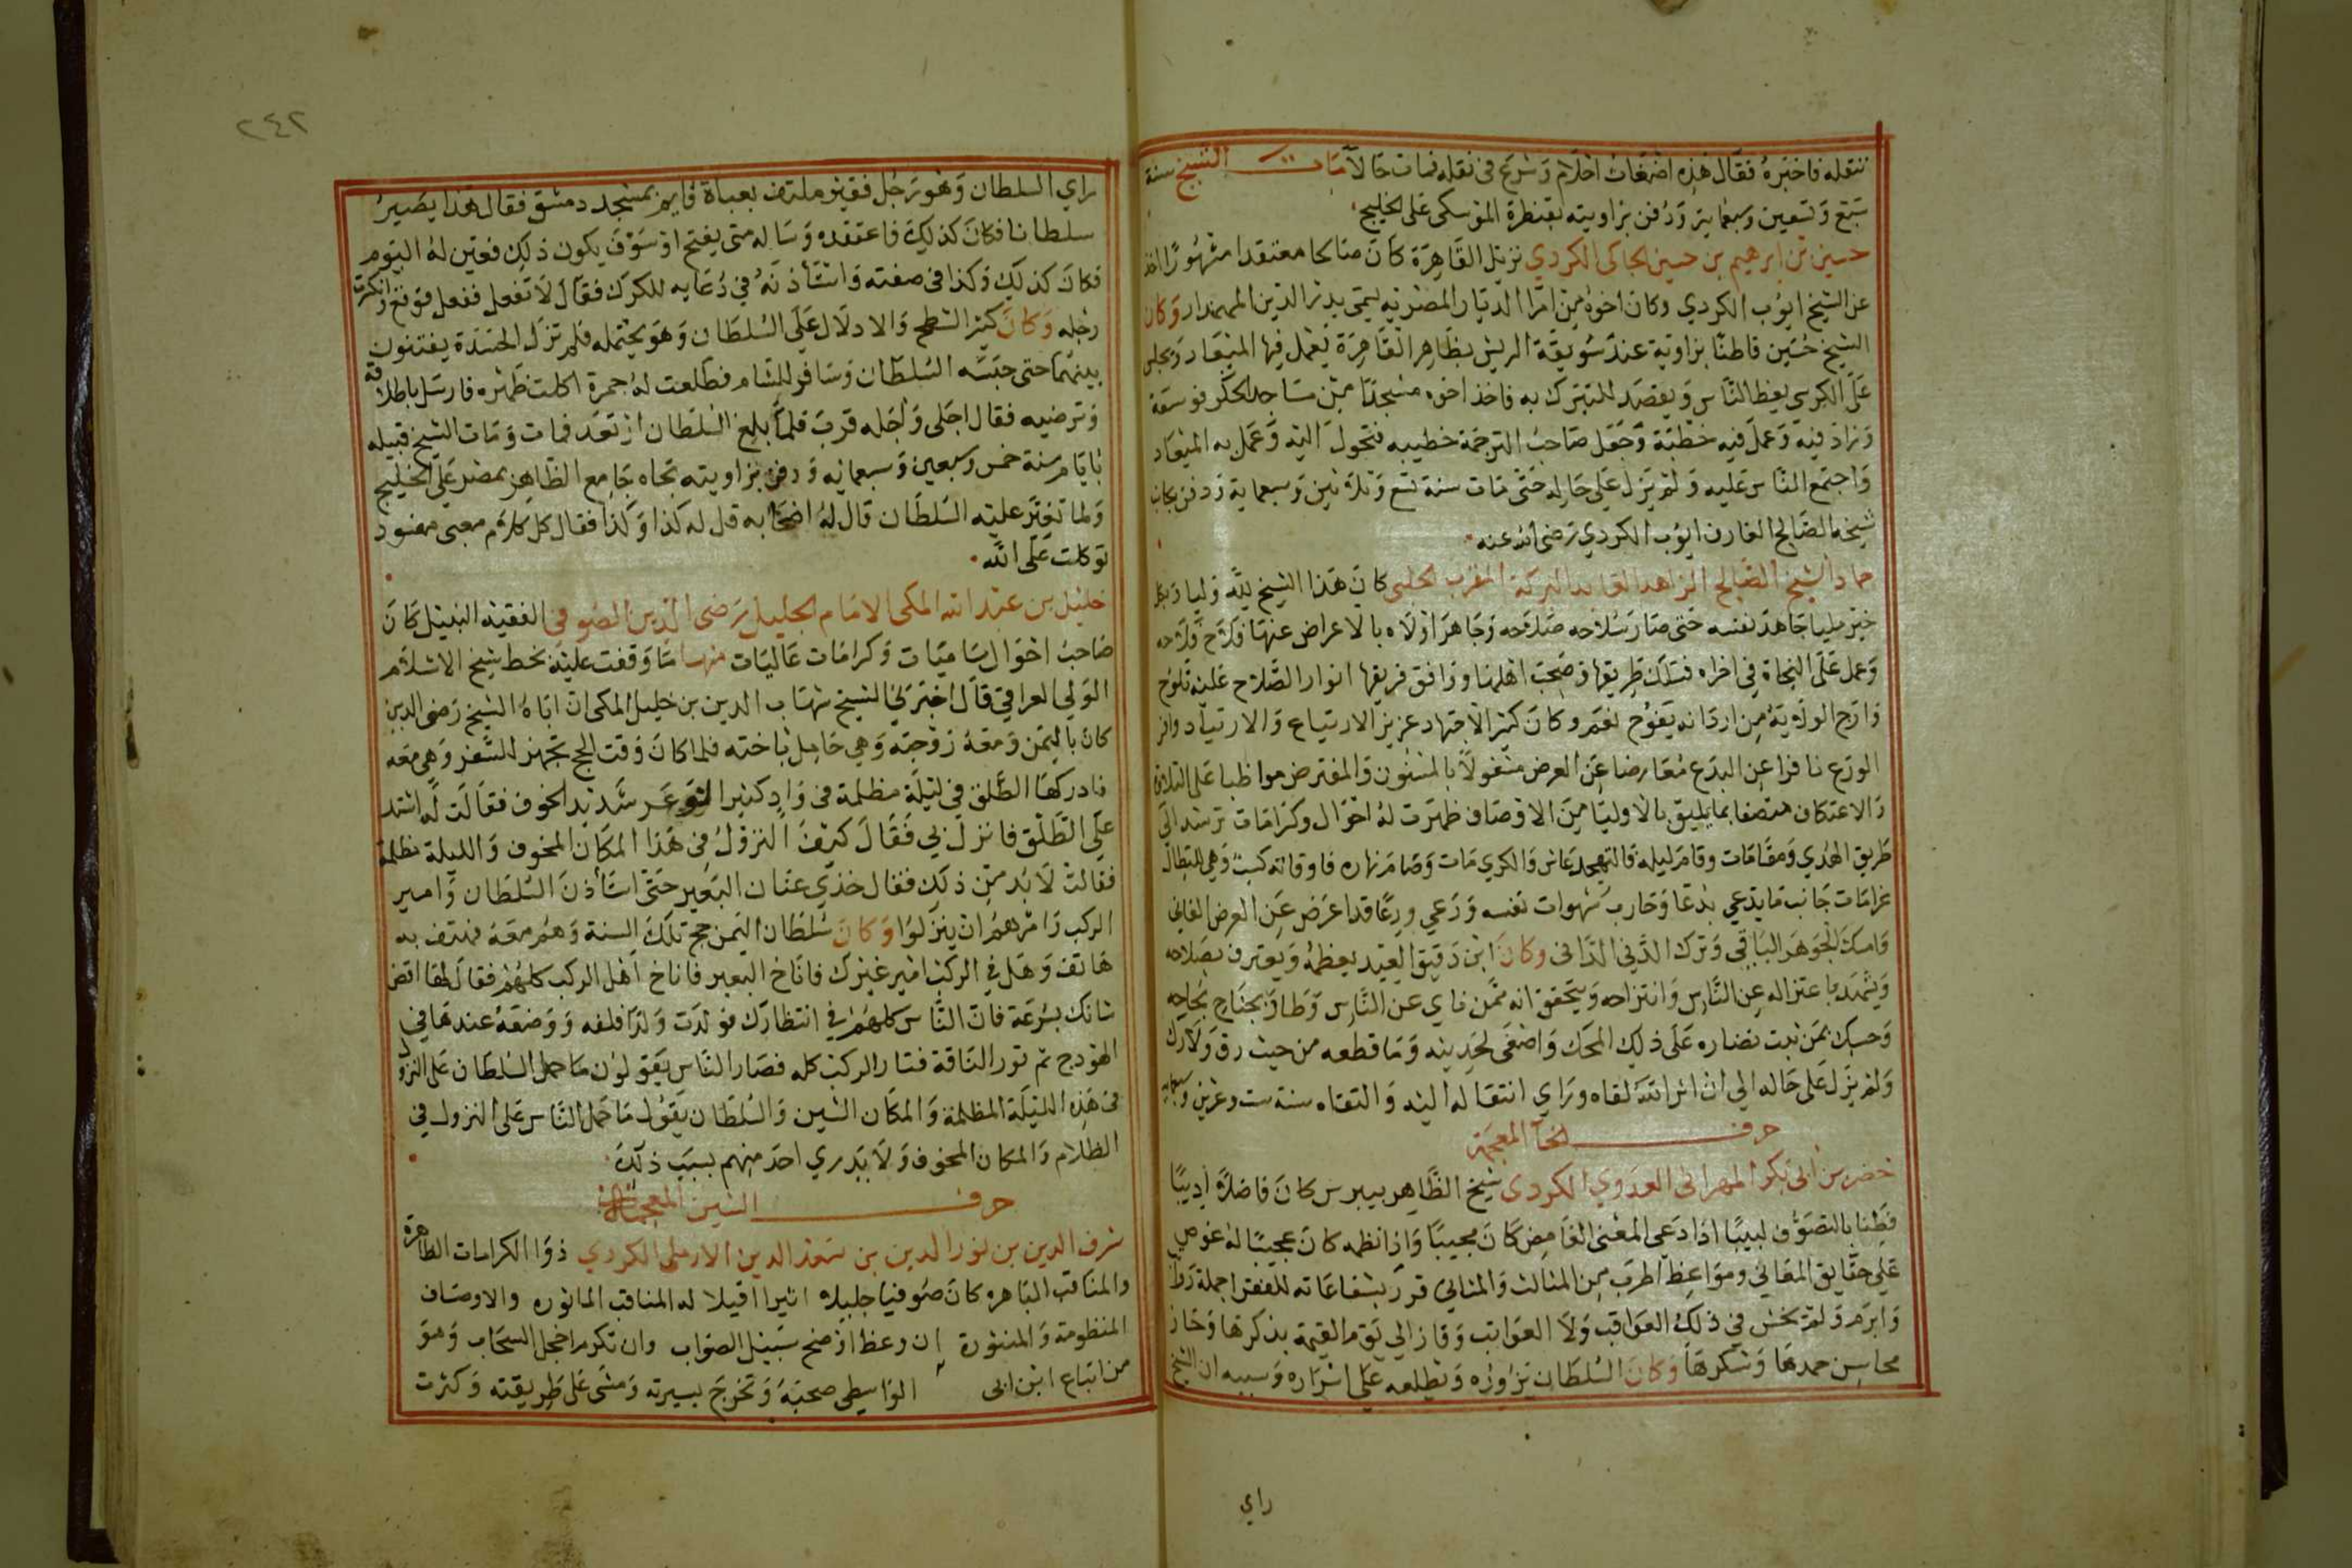 ننقله فاخبره فقال هذه اضغاث احلام وشرع في نقله فمات حالا مات الشيخ سنة
سبع وتسعين وسبعماية ودفن بزاويته بقنطرة الموسكي على الخليج
حسين بن ابرهيم بن حسين الجاكي الكردي نزيل القاهرة كان صالحا معتقدا مشهورا اخذ
عن الشيخ ايوب الكردي وكان اخوه من امرا الديار المصرية يسمى بدر الدين المهمندار وكان
الشيخ حسين قاطنا بزاوية عند سويقة الريش بظاهر القاهرة يعمل فيها الميعاد ويجلس
على الكرسي يعظ الناس ويقصد للتبرك به فاخذ اخوه مسجدا من مساجد الحكر فوسعه
وزاد فيه وعمل فيه خطبة وجعل صاحب الترجمة خطيبه فتحول اليه وعمل به الميعاد
واجتمع الناس عليه ولم يزل على حاله حتى مات سنة تسع وثلاثين وسبعماية ودفن بجانب
شيخه الصالح العارف ايوب الكردي رضي الله عنه
حماد الشيخ الصالح الزاهد العابد البركة المقرب الحلبي كان هذا الشيخ لله وليا وبكل
خير مليا جاهد نفسه حتى صار سلاحه صلاحه وجاهر اولاه بالاعراض عنها فلاح فلاحه
وعمل على النجاة في اخراه فسلك طريقها وصحب اهلها ورافق فريقها انوار الصلاح عليه تلوح
وارج الولاية من اردانه يفوح نعم وكان كثير الاجتهاد عزيز الارتياع والارتياد وافر
الورع نافرا عن البدع معارضا عن العرض مشغولا بالمسنون والمفترض مواظبا على التلاوة
والاعتكاف متصفا بما يليق بالاوليا من الاوصاف ظهرت له احوال وكرامات ترشد الى
طريق الهدي ومقامات وقام ليله فالتهجد عاش والكري مات وصام نهاره فاوقاته كسبت وهي للبطال
غرامات جانب ما يدعي بدعا وحارب شهوات نفسه ودعي ورعا قد اعرض عن العرض الفاني
وامسك الجوهر الباقي وترك الدني الداني وكان ابن دقيق العيد يعظمه ويعترف بصلاحه
ويشهد باعتزاله عن الناس وانتزاحه ويتحقق انه ممن ناي عن الناس وطار بجناح نجاحه
وحسبك بمن ثبت نضاره على ذلك المحك واصغى لحديثه وما قطعه من حيث رق ولا رك
ولم يزل على حاله الي ان اثر الله لقاه وراي انتقاله اليه والتقاه سنة ست وعشرين وسبعماية
حرف الخآ المعجمة
خضر بن ابي بكر المهراني العدوي الكردي شيخ الظاهر بيبرس كان فاضلا اديبا
فطنا بالتصوف لبيبا اذا دعي المعنى الغامض كان مجيبا واذا نظمه كان عجيبا له غوص
على حقايق المعاني ومواعظ اطرب من المثالث والمثاني قرر بشفاعاته للفقرا جملة رواتب
وابرم ولم يخش في ذلك العواقب ولا العواتب وفاز الي يوم القيمة بذكرها وحاز
محاسن حمدها وشكرها وكان السلطان يزاوره ويطلعه على اسراره وسببه ان الشيخ
راي
٢٤٢
راي السلطان وهو رجل فقير ملتف بعباة قايم بمسجد دمشق فقال هذا يصير
سلطانا فكان كذلك فاعتقده وساله متى يفتح ارسوف يكون ذلك فعين له اليوم
فكان كذلك وكذا في صفته واستأذنه في ذهابه للكرك فقال لا تفعل ففعل فوقع وانكسرت
رجله وكان كثير الشطح والادلال على السلطان وهو يحتمله فلم تزل الحسدة يفتنون
بينهما حتى حبسه السلطان وسافر للشام فطلعت له جمرة اكلت ظهره فارسل باطلاقه
وترضيه فقال اجلي واجله قرب فلما بلغ السلطان ارتعد فمات ومات الشيخ قبيله
بايام سنة خمس وسبعين وسبعمايه ودفن بزاويته تجاه جامع الظاهر بمصر على الخليج
ولما تغير عليه السلطان قال له اصحابه قل له كذا وكذا فقال كل كلام معبى مفسود
توكلت على الله
خليل بن عبد الله المكي الامام الجليل رضي الدين الصوفي الفقيه النبيل كان
صاحب احوال ساميات وكرامات عاليات منها ما وقفت عليه بخط شيخ الاسلام
الولي العراقي قال اخبرني الشيخ شهاب الدين بن خليل المكي ان اباه الشيخ رضي الدين
كان باليمن ومعه زوجته وهي حامل باخته فلما كان وقت الحج تجهز للسفر وهي معه
فادركها الطلق في ليلة مظلمة في واد كثير الشوعر شديد الخوف فقالت له اشتد
علي الطلق فانزل بي فقال كيف النزول في هذا المكان المخوف والليلة مظلمة
فقالت لا بد من ذلك فقال خذي عنان البعير حتى استأذن السلطان وامير
الركب وامرهم ان ينزلوا وكان سلطان اليمن حج تلك السنة وهم معه فهتف به
هاتف وهل في الركب امير غيرك فاناخ البعير فاناخ اهل الركب كلهم فقال لها اقض
شانك بسرعة فان الناس كلهم في انتظارك فولدت ولدا فلفه ووضعه عندها في
الهودج ثم ثور الناقة فسار الركب كله فصار الناس يقولون ما حمل السلطان على النزول
في هذه الليلة المظلمة والمكان الشين والسلطان يقول ما حمل الناس على النزول في
الظلام والمكان المخوف ولا يدري احد منهم بسبب ذلك
حرف الشين المعجمة
شرف الدين بن نور الدين بن سعد الدين الاربلي الكردي ذوا الكرامات الظاهرة
والمناقب الباهره كان صوفيا جليلا اثيرا اقيلا له المناقب الماثوره والاوصاف
المنظومة والمنثورة ان وعظ اوضح سبيل الصواب وان تكرم اخجل السحاب وهو
من اتباع ابن ابي الواسطي صحبه وتخرج بسيرته ومشى على طريقته وكثرت